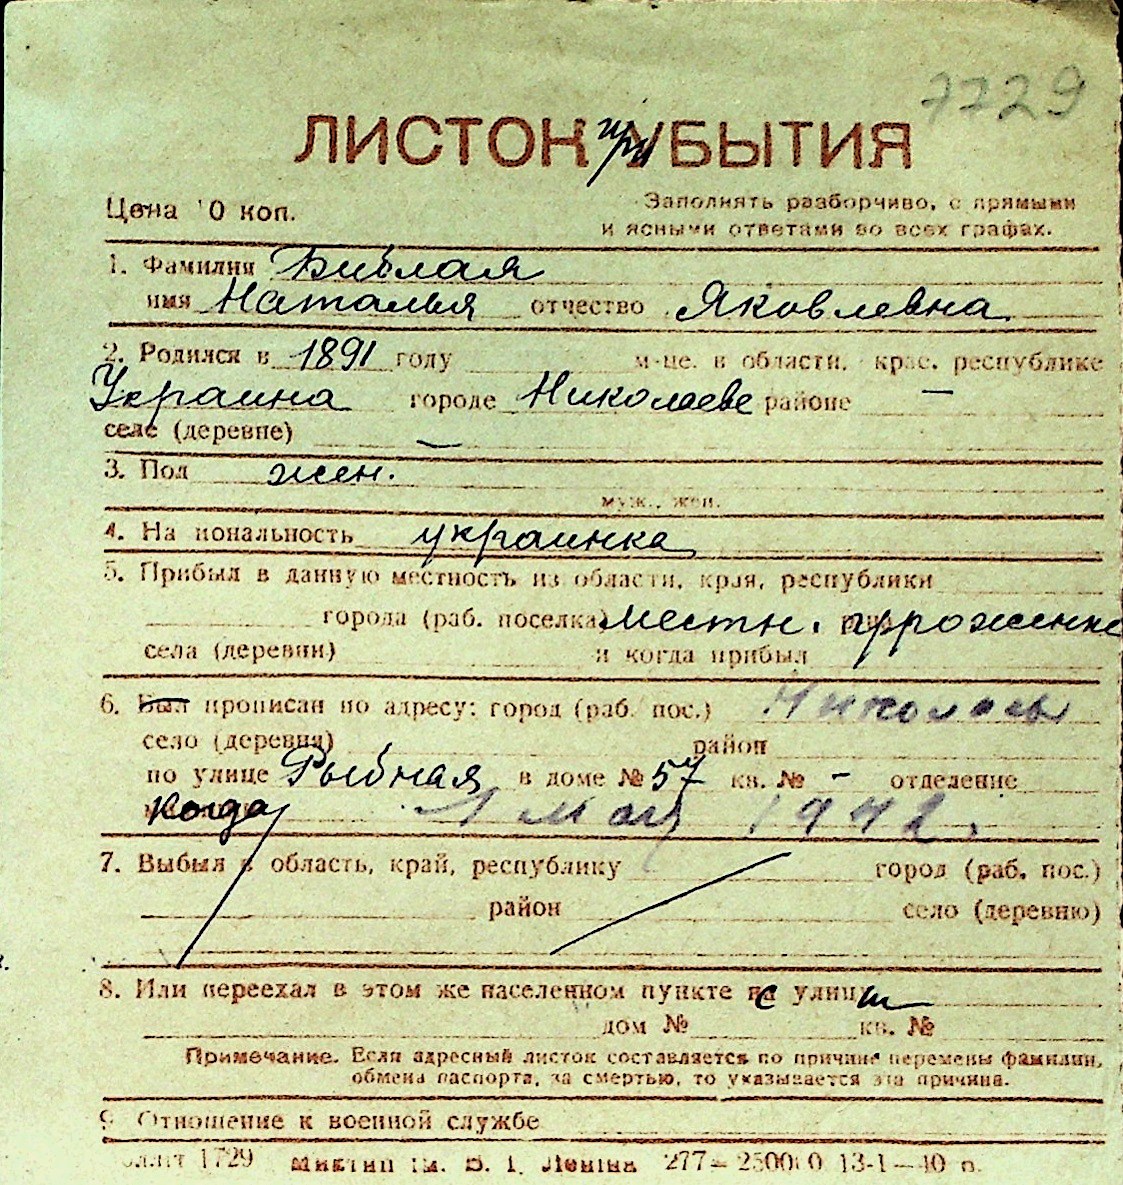 7729
ЛИСТОК при УБЫТИЯ
Цена 10 коп.
Заполнять разборчиво, с прямыми
и ясными ответами во всех графах.
1. Фамилия Бивлая
имя Наталья отчество Яковлевна
2. Родился в 1891 году м-це. в области, крас. республике
Украина городе Николаеве районе –
селе (деревне) –
3. Пол жен.
муж., жен.
4. На иональность украинка
5. Прибыл в данную местность из области, края, республики
города (раб. поселка) местн. урроженка
села (деревни) и когда прибыл
6. Был прописан по адресу: город (раб. пос.) Николаев
село (деревня) район
по улице Рыбная в доме № 57 кв. № – отделение
когда 1 мая 1942.
7. Выбыл в область, край, республику город (раб. пос.)
район село (деревню)
8. Или переехал в этом же населенном пункте с улицы
дом № кв. №
Примечание. Если адресный листок составляется по причине перемены фамилии,
обмена паспорта, за смертью, то указывается эта причина.
9 Отношение к военной службе
1729 ім. В. І. Леніна 277 – 13-1—40 р.